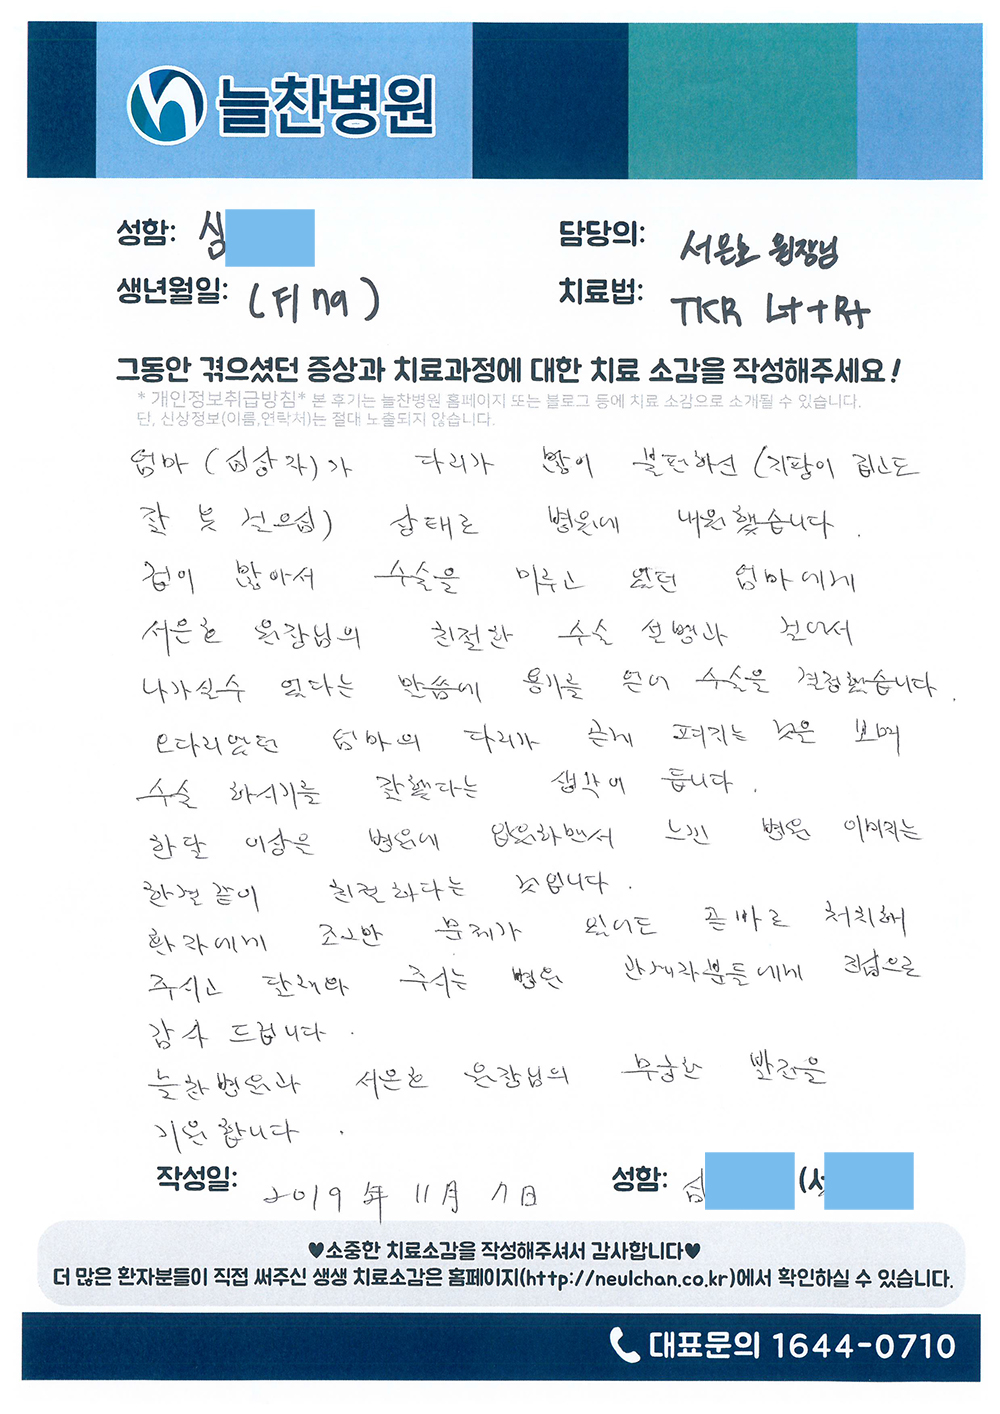 늘찬병원
성함: 심
담당의: 서은호 원장님
생년월일: (F/79)
치료법: TKR Lt + Rt
그동안 겪으셨던 증상과 치료과정에 대한 치료 소감을 작성해주세요!
* 개인정보취급방침* 본 후기는 늘찬병원 홈페이지 또는 블로그 등에 치료 소감으로 소개될 수 있습니다.
단, 신상정보(이름,연락처)는 절대 노출되지 않습니다.
엄마 (심상자)가 다리가 많이 불편하신 (지팡이 짚고도
잘 못 걸으심) 상태로 병원에 내원했습니다.
겁이 많아서 수술을 미루고 있던 엄마에게
서은호 원장님의 친절한 수술 설명과 걸어서
나가실수 있다는 말씀에 용기를 얻어 수술을 결정했습니다.
O다리였던 엄마의 다리가 곧게 펴지는 것을 보며
수술 하시기를 잘했다는 생각이 듭니다.
한달 이상을 병원에 입원하면서 느낀 병원 이미지는
한결같이 친절하다는 것입니다.
환자에게 조그만 문제가 있어도 곧바로 처치해
주시고 달래와 주시는 병원 관계자분들에게 진심으로
감사 드립니다.
늘찬병원과 서은호 원장님의 무궁한 발전을
기원합니다.
작성일: 2019年 11月 7日
성함: 심 (서
♥소중한 치료소감을 작성해주셔서 감사합니다♥
더 많은 환자분들이 직접 써주신 생생 치료소감은 홈페이지(http://neulchan.co.kr)에서 확인하실 수 있습니다.
대표문의 1644-0710